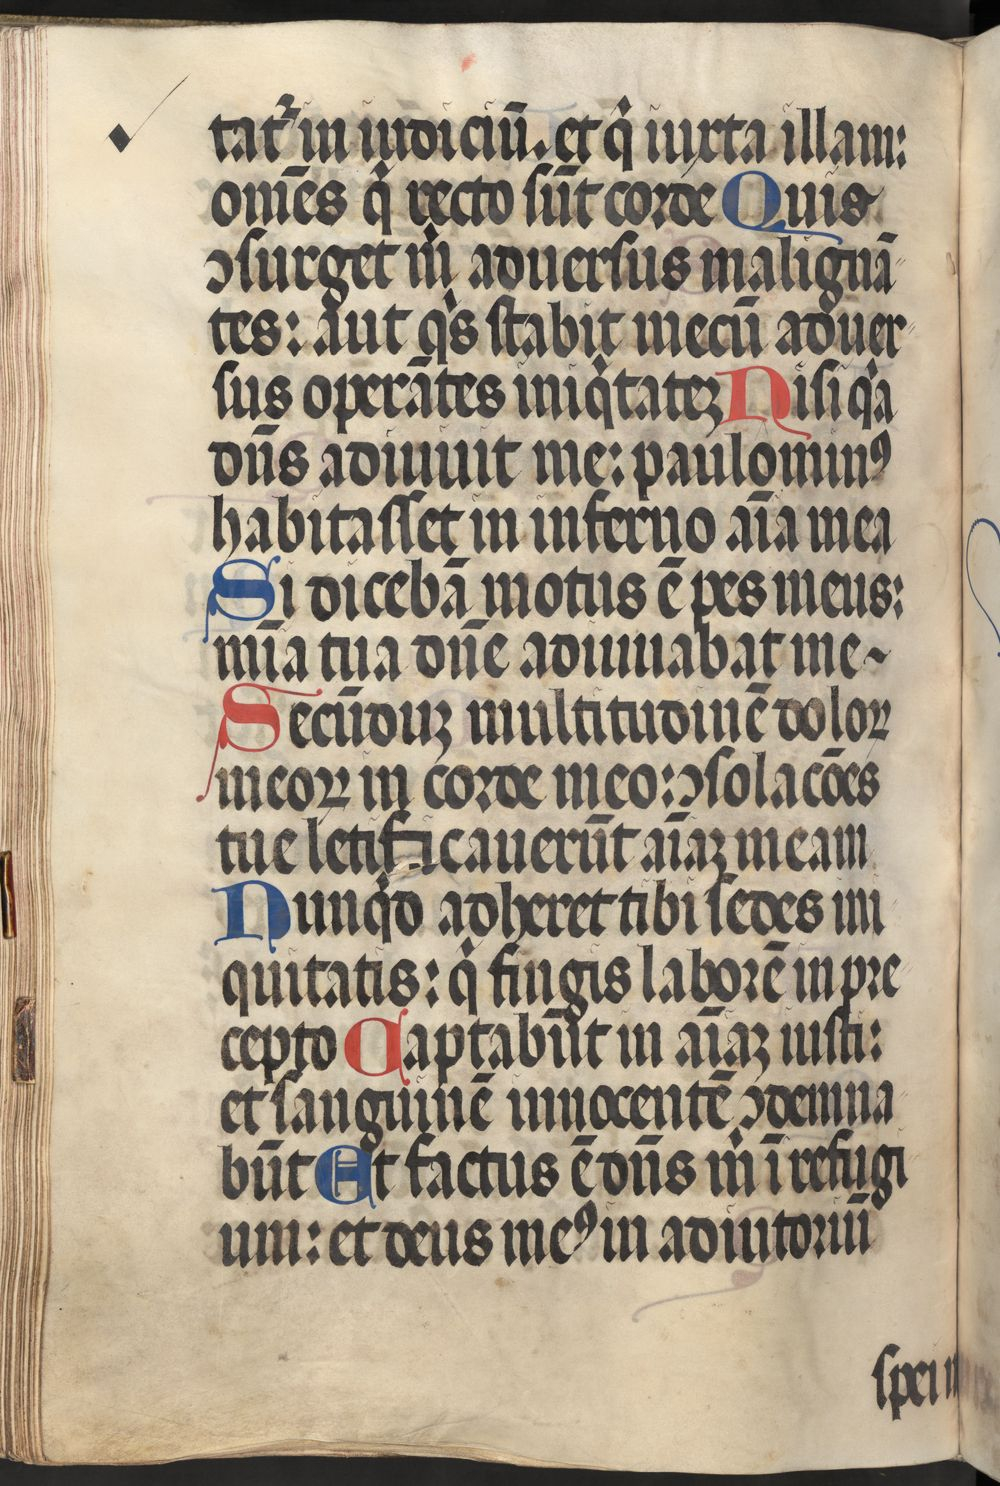 tat᷑ in iudiciū. et q̇ iuxta illam:
om̄es q̇ recto sūt corde Quis
ꝯsurget ṁ aduersus malignā
tes: aut qͥs stabit mecū aduer
sus operātes iniqͥtateꝫ Nisi qͥa
dn̄s adiuuit me: paulominꝰ
habitasset in inferno aīa mea
Si dicebā motus ē pes meus:
mīa tua dn̄e adiuuabat me~
Secūduꝫ multitudinē doloꝝ
meoꝝ in corde meo: ꝯsolacōes
tue letificauerūt aīaꝫ meam
Nunqͥd adheret tibi sedes ini
quitatis: q̇ fingis laborē in pre
cepto Captabūt in aīaꝫ iusti:
et sanguinē innocentē ꝯdemna
būt Et factus ē dn̄s ṁ ī refugi
um: et deus meꝰ in adiutoriū
spei m